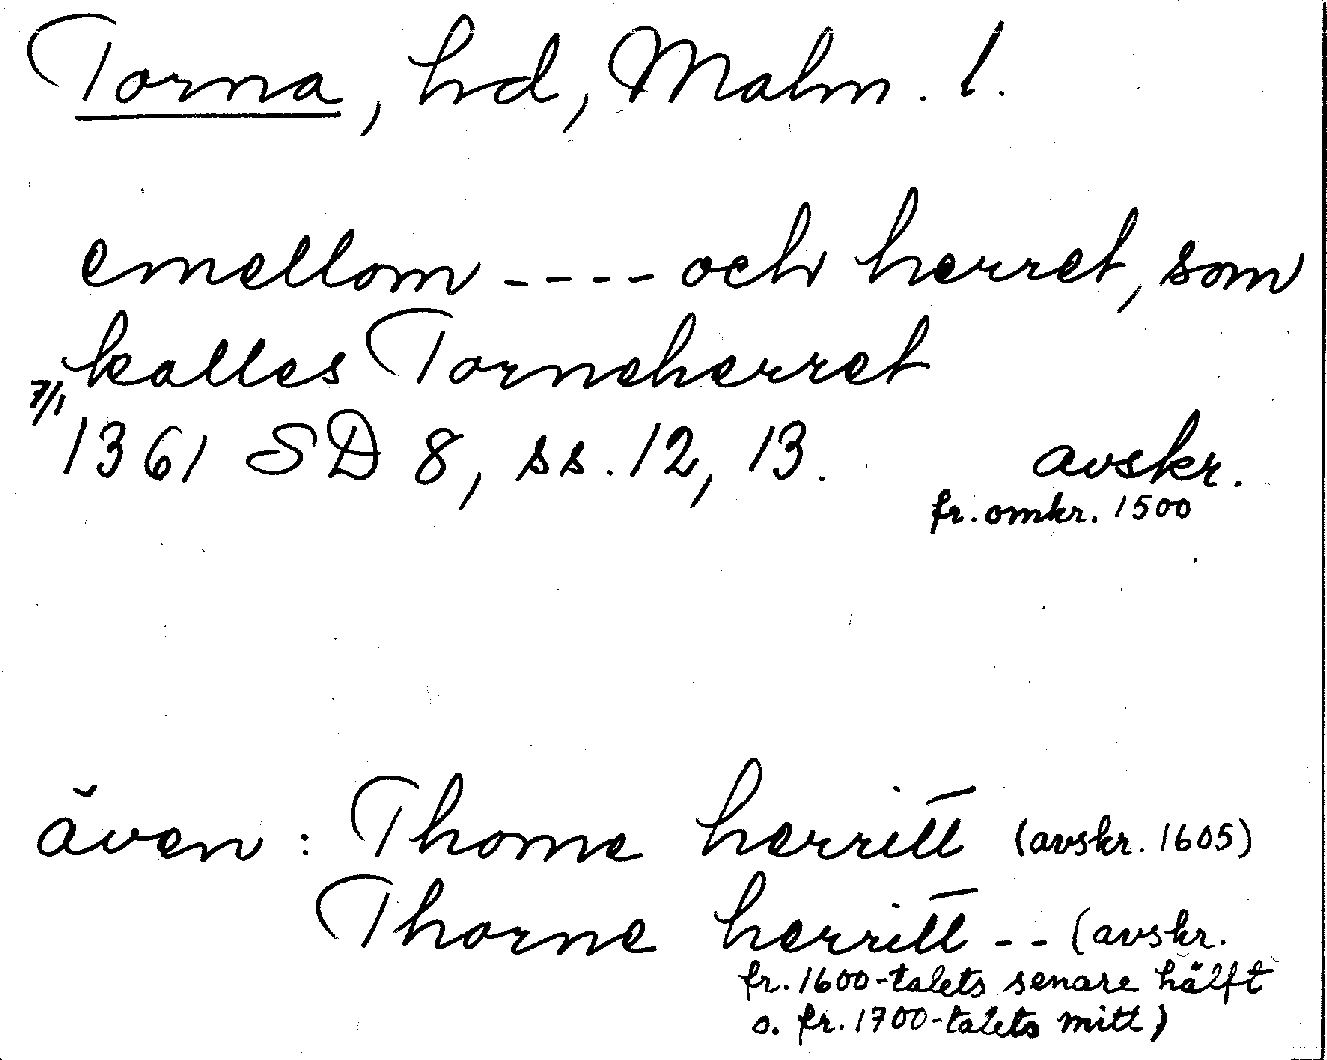 Torna, hd, Malm. l.
emellom ---- och herret, som
kalles Torneherret
7/1 1361 SD 8, ss. 12, 13. avskr.
fr. omkr. 1500
även: Thome herritt (avskr. 1605)
Thorne herritt -- (avskr.
fr. 1600-talets senare hälft
o. fr. 1700-talets mitt)